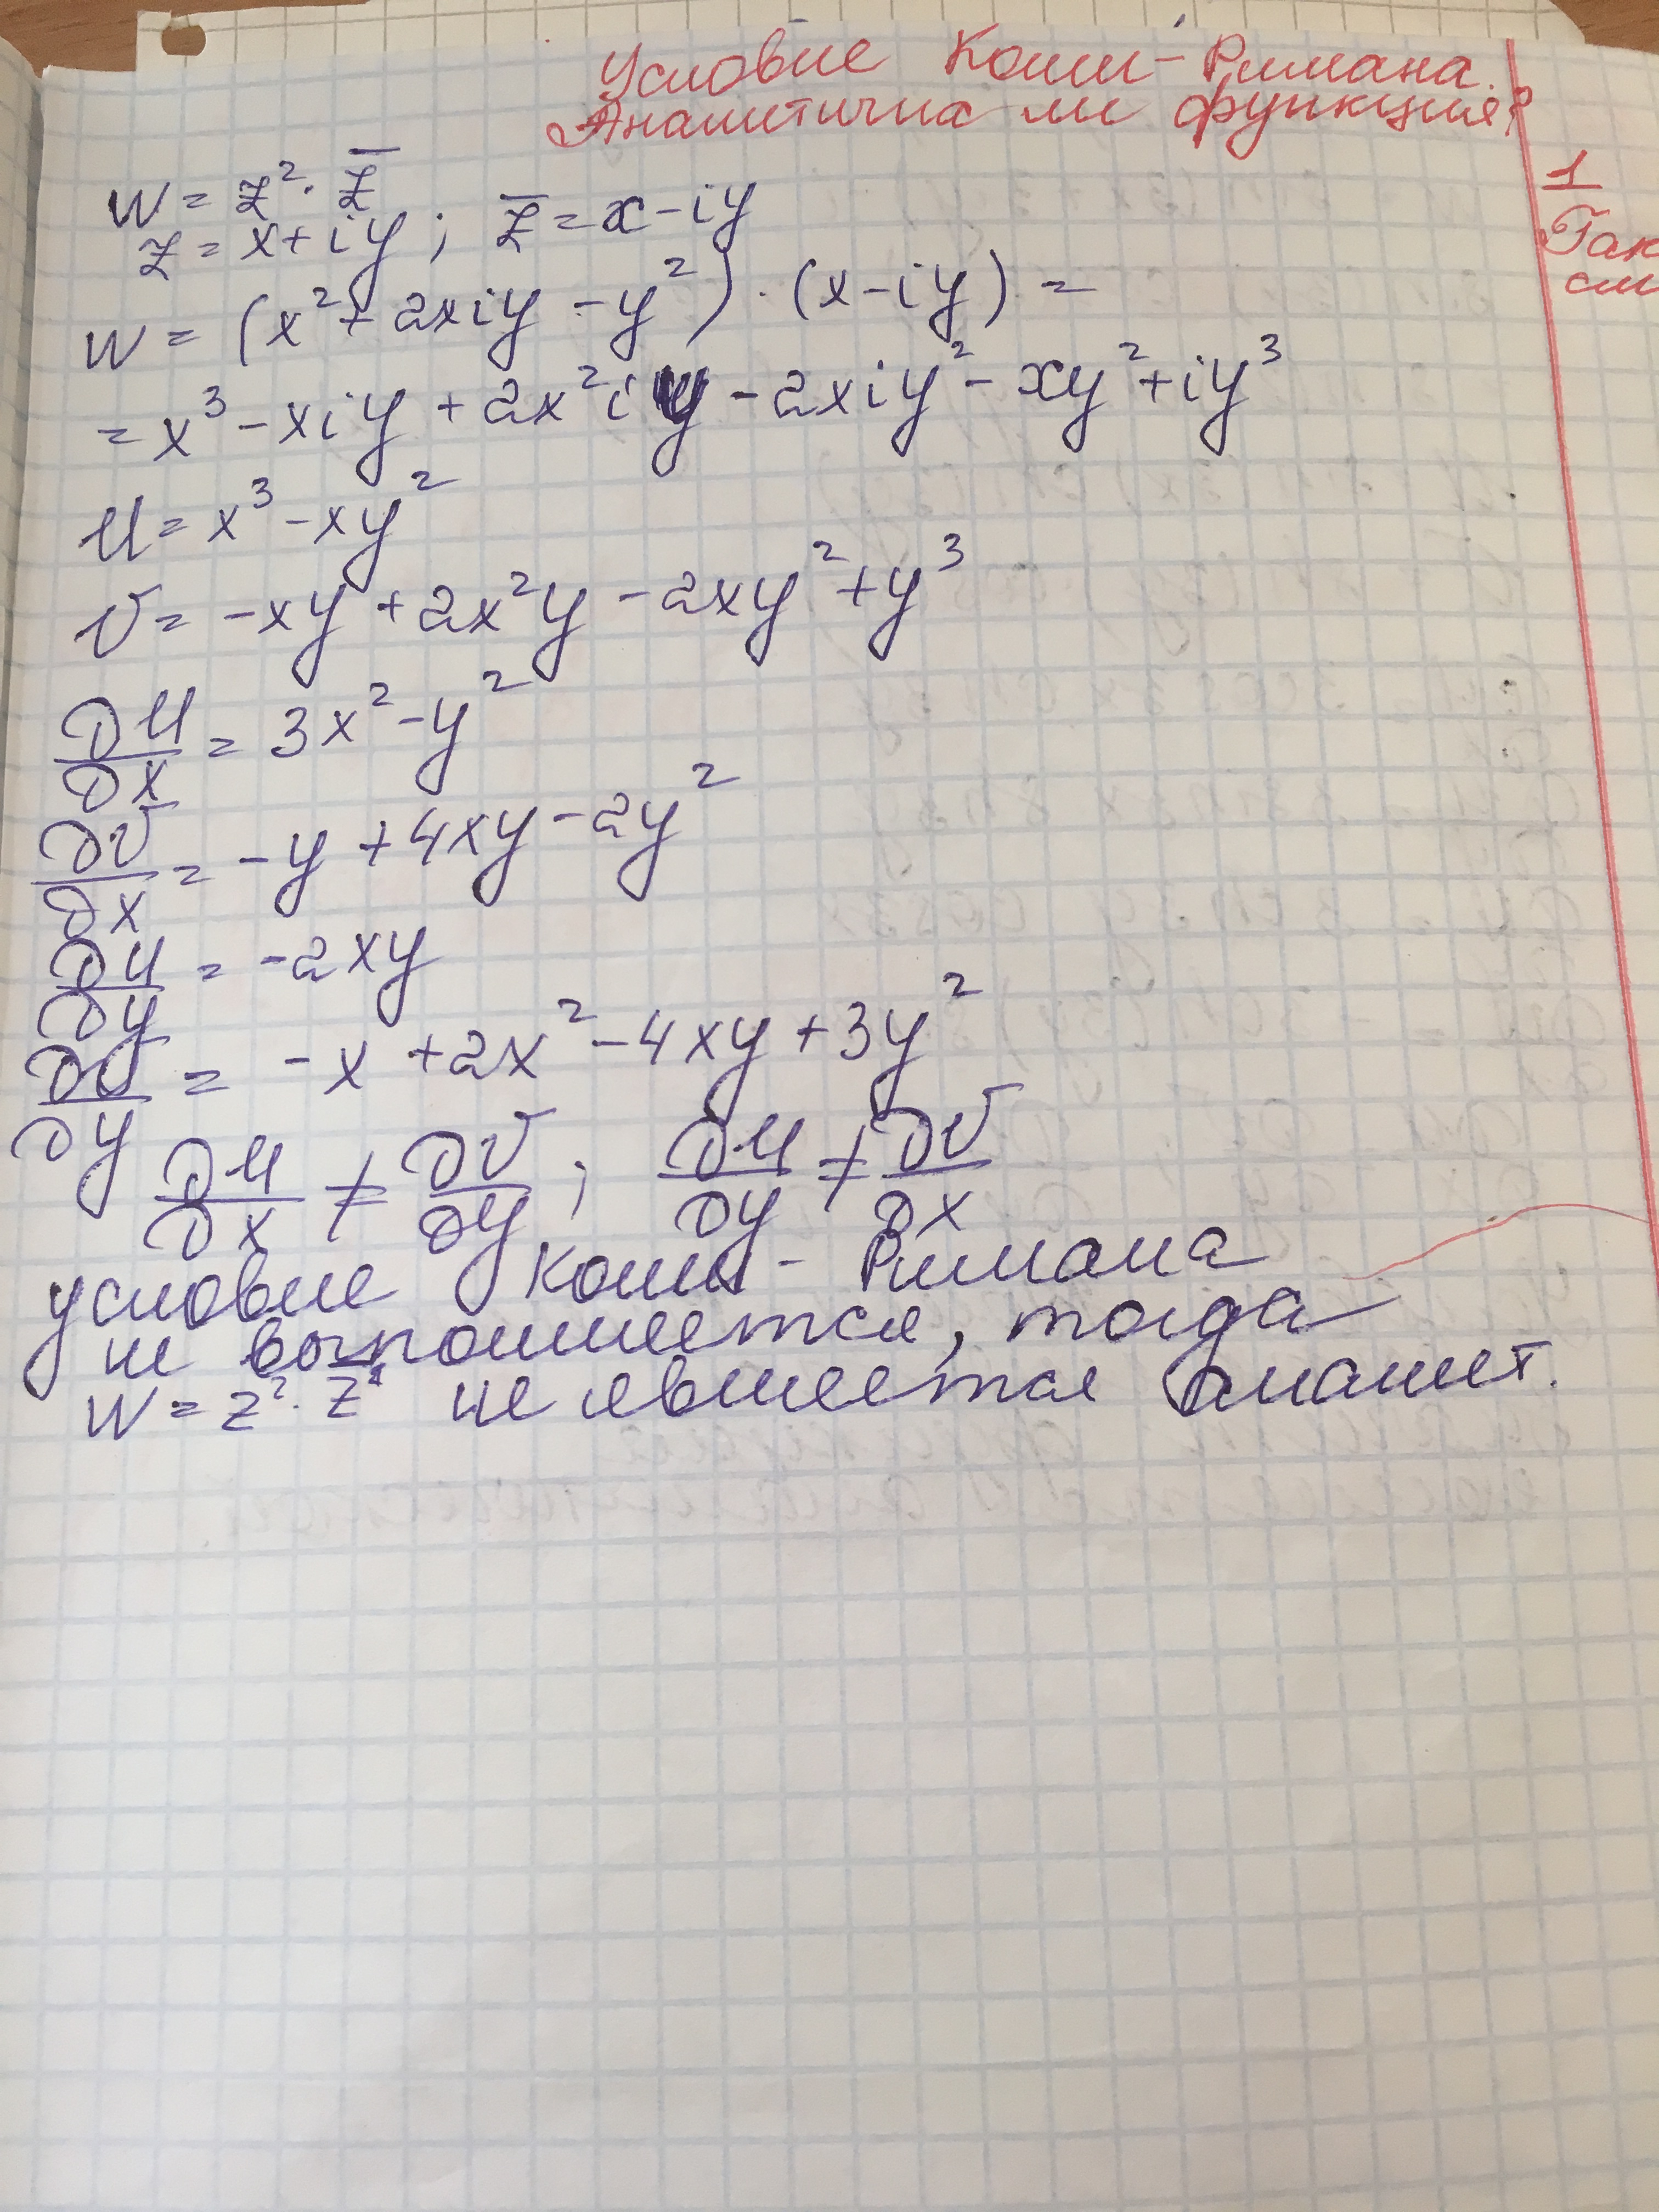 Условие Коши-Римана.
Аналитична ли функция?
W = z². z̅
z = x+iy; z̅ = x-iy
W = (x²+2xiy-y²)·(x-iy) =
= x³-xiy+2x²iy-2xiy²-xy²+iy³
U = x³-xy²
V = -xy+2x²y-2xy²+y³
∂U/∂x = 3x²-y²
∂V/∂x = -y+4xy-2y²
∂U/∂y = -2xy
∂V/∂y = -x+2x²-4xy+3y²
∂U/∂x ≠ ∂V/∂y; ∂U/∂y ≠ ∂V/∂x
условие Коши-Римана
не выполняется, тогда
W = z². z̅ не является аналит.
1